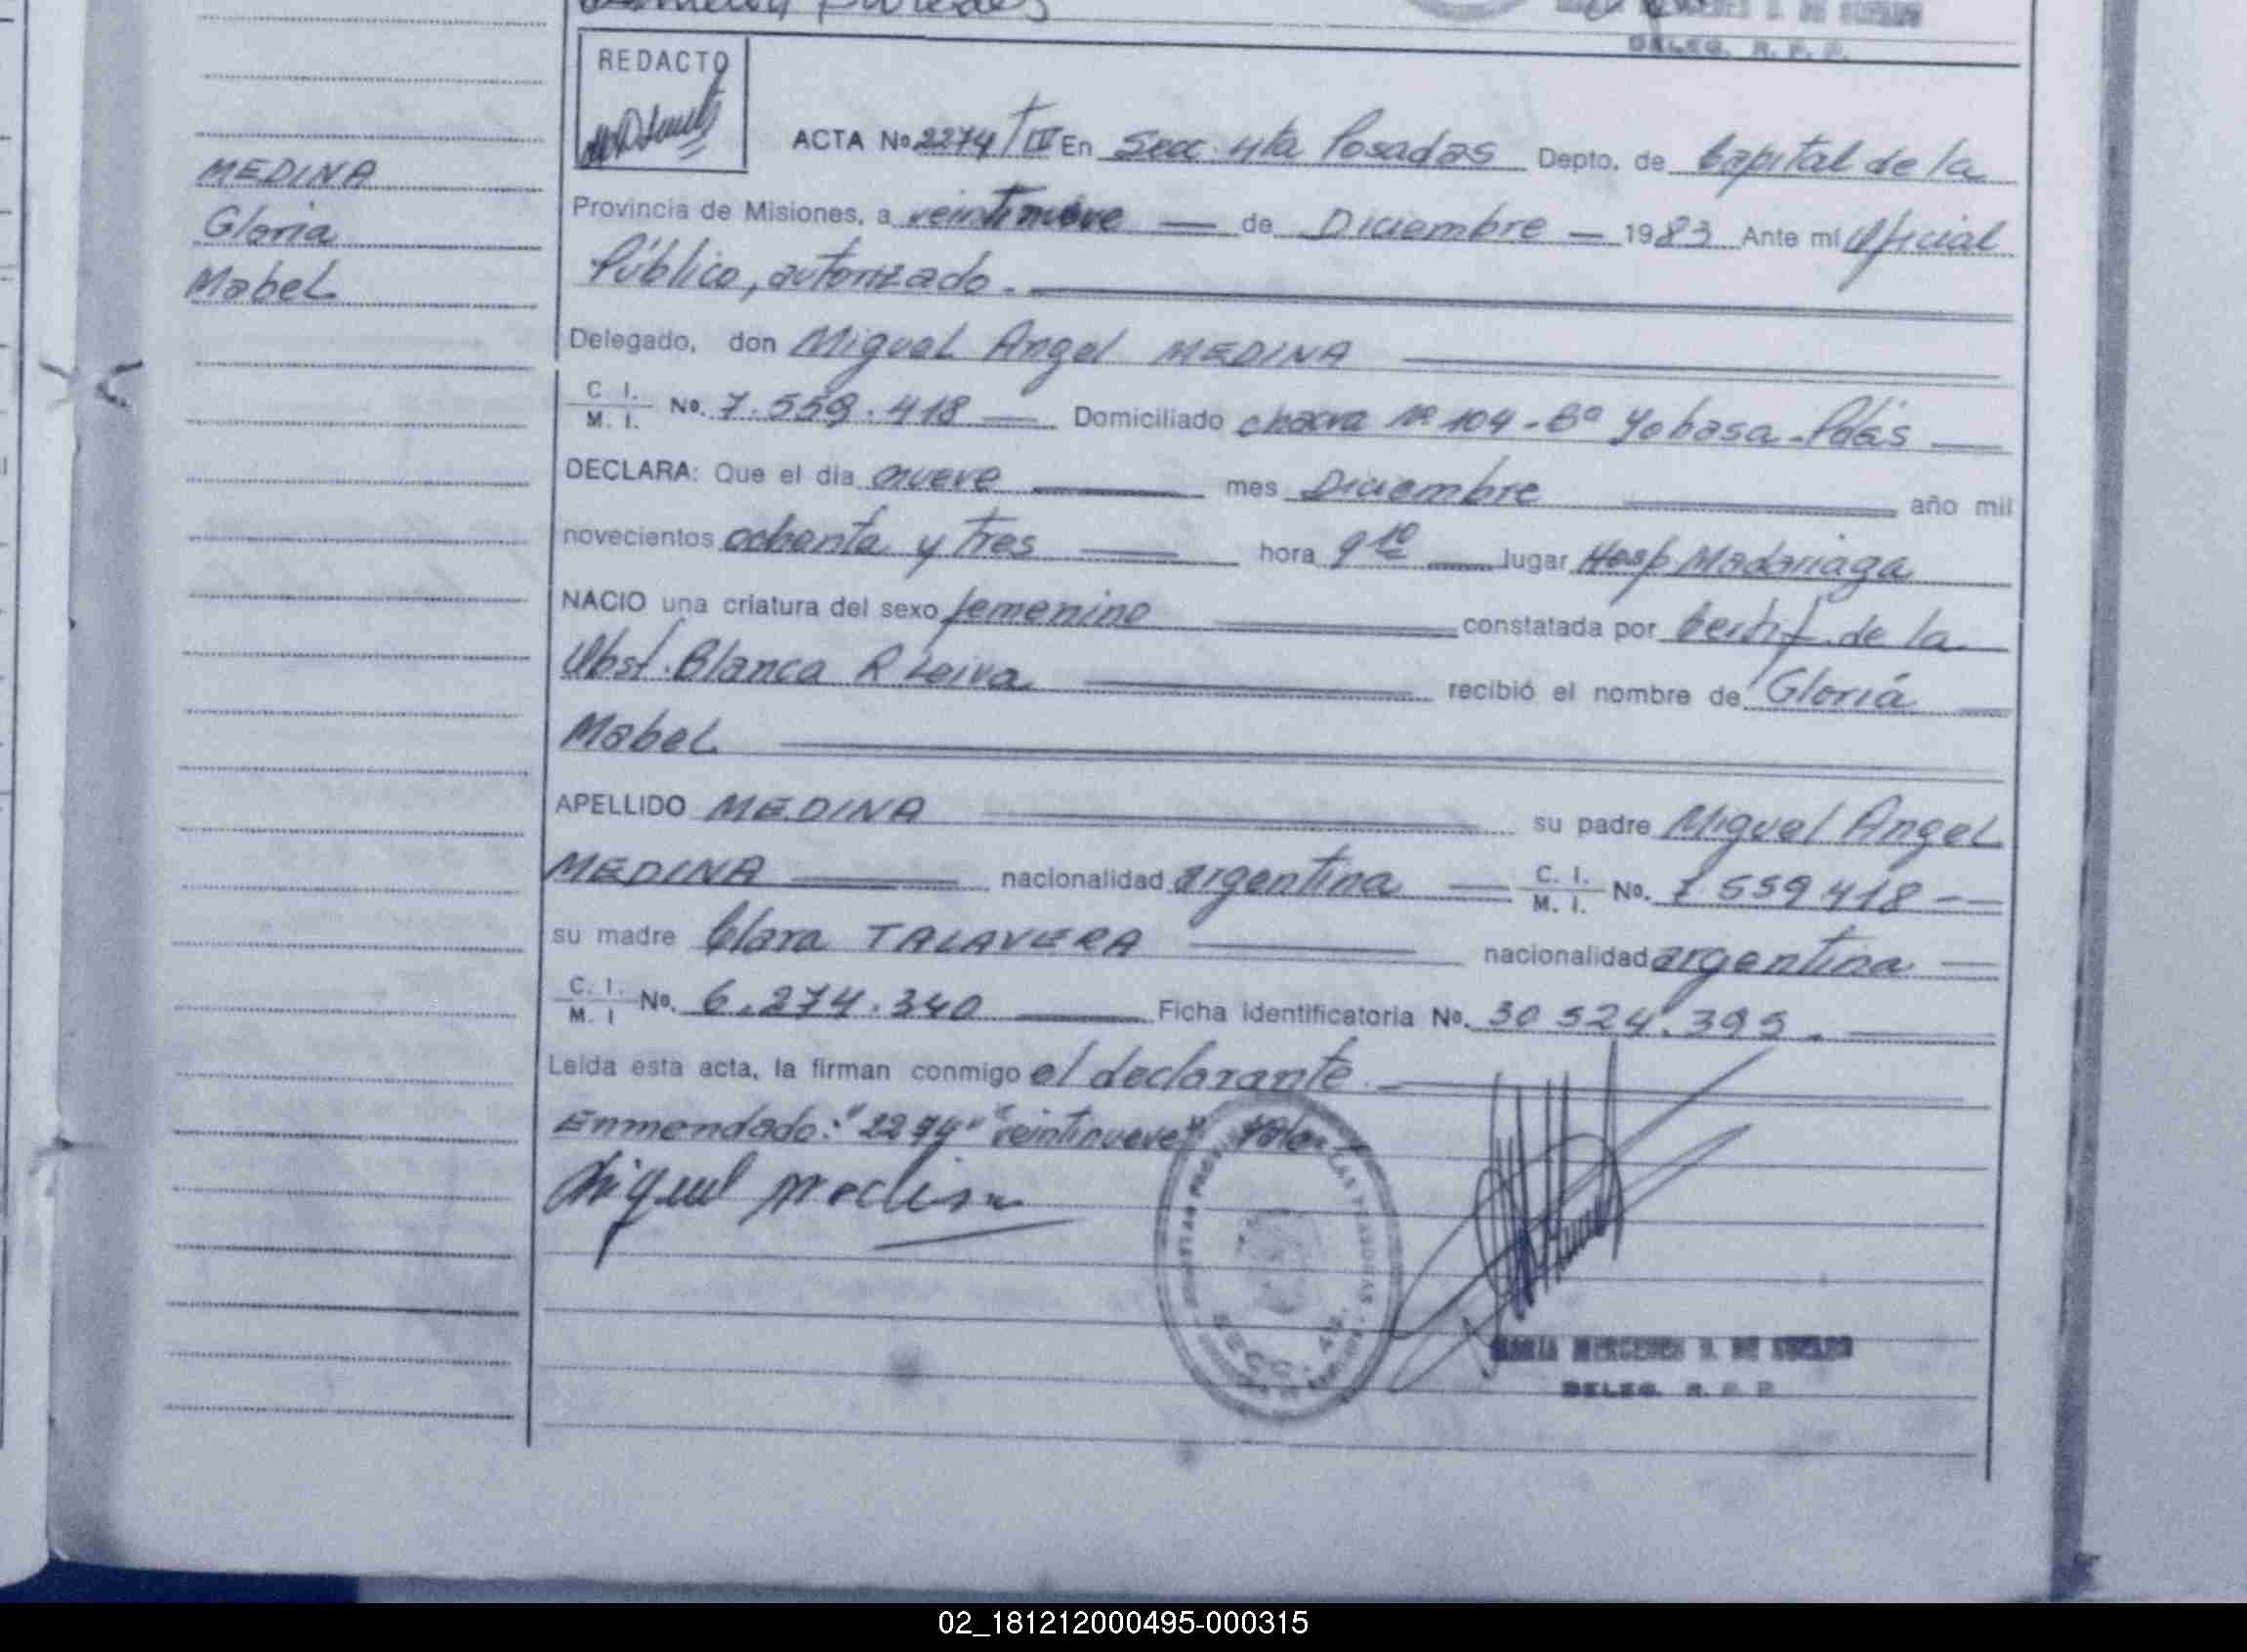 DELEG. R. P. P.
REDACTO
MEDINA
Gloria
Mabel
ACTA No 2274/IV En Secc. 4ta Posadas Depto. de Capital de la
Provincia de Misiones, a veintinueve — de Diciembre — 1983 Ante mí Oficial
Público, autorizado.
Delegado, don Miguel Angel MEDINA
C. I. / M. I. No. 7.559.418 — Domiciliado chacra Nº 104 - Bº Yohasa - Pdas
DECLARA: Que el día nueve mes Diciembre año mil
novecientos ochenta y tres hora 9 10 lugar Hosp Madariaga
NACIO una criatura del sexo femenino constatada por Certif. de la
Obst. Blanca R Leiva recibió el nombre de Gloria
Mabel
APELLIDO MEDINA su padre Miguel Angel
MEDINA nacionalidad argentina — C. I. / M. I. No. 7 559 418 --
su madre Clara TALAVERA nacionalidad argentina —
C. I. / M. I No. 6.274.340 Ficha identificatoria No. 30 524.395.
Leída esta acta, la firman conmigo el declarante.
Enmendado: "2274" "veintinueve" Vale
Miguel Medina
SECC. 4a.
MARIA MERCEDES
DELEG. R. P. P
02_181212000495-000315